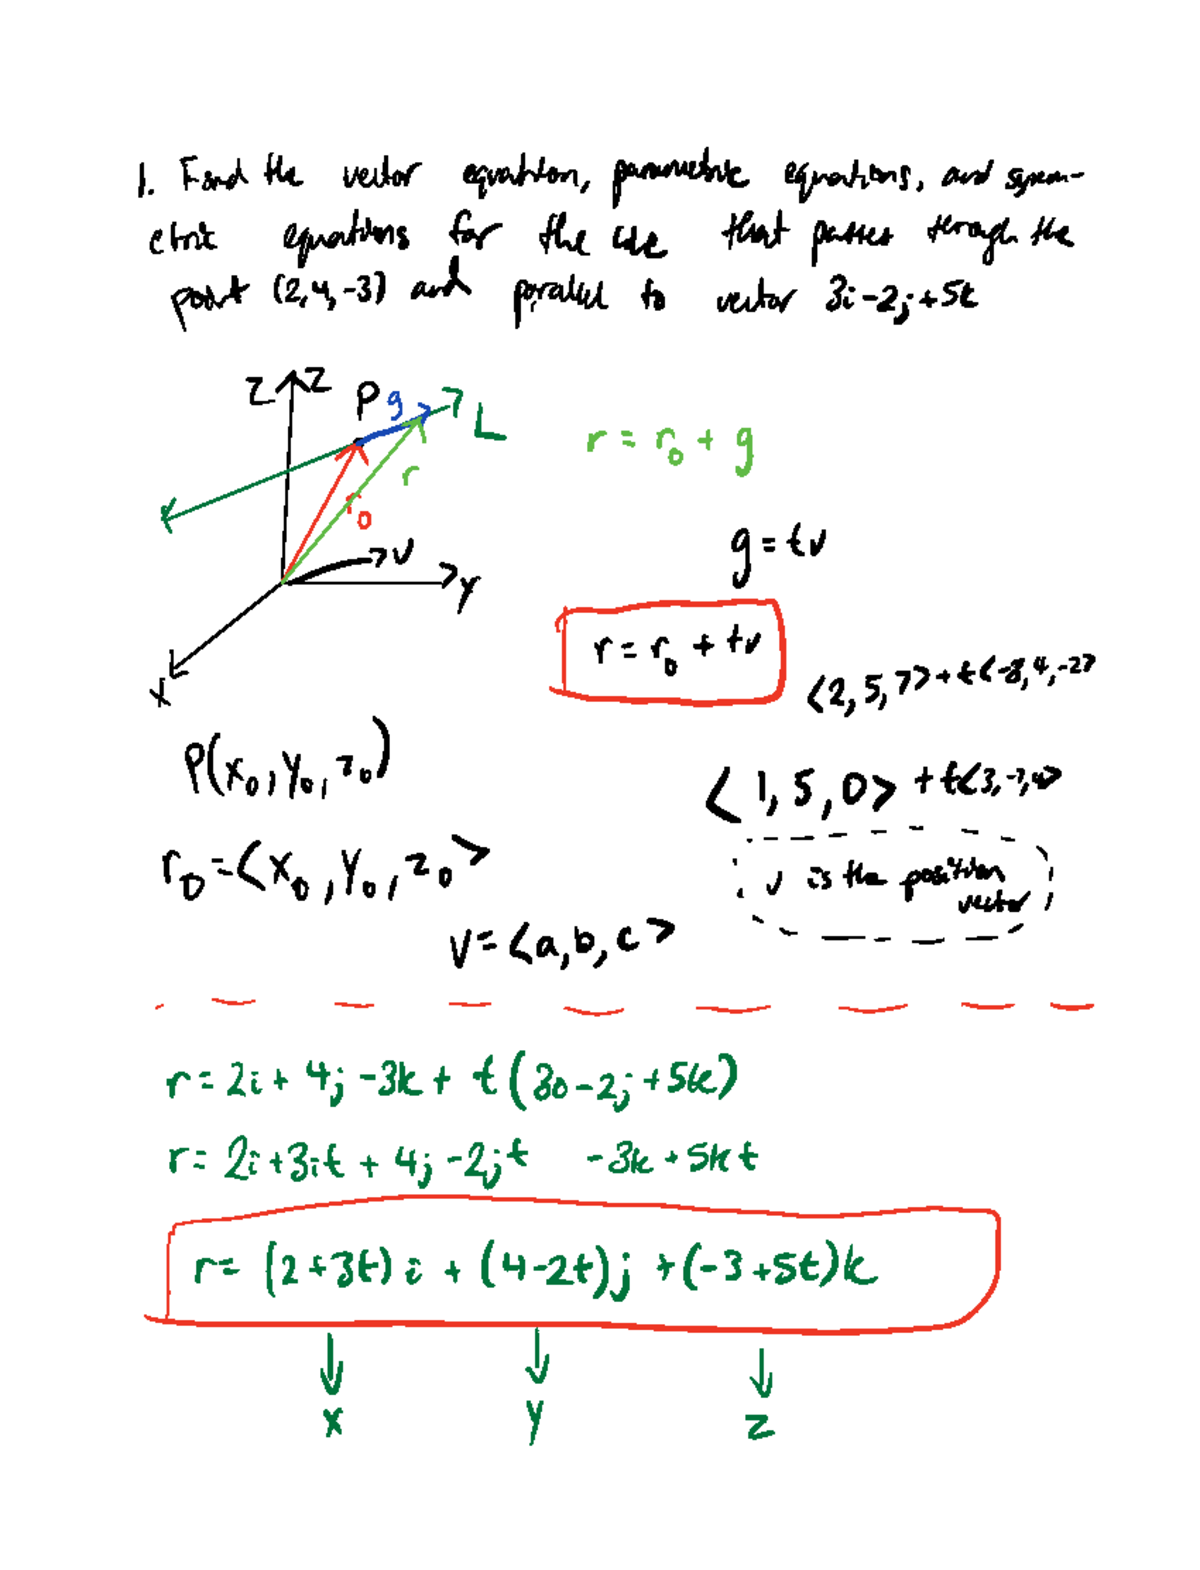 1. Find the vector equation, parametric equations, and symm-
etric equations for the line that passes through the
point (2,4,-3) and parallel to vector 3i-2j+5k
z z
P g
L
r = r₀ + g
r
r₀
g = tv
v
y
r = r₀ + tv
x
⟨2, 5, 7⟩ + t⟨-8, 4, -2⟩
P(x₀, y₀, z₀)
⟨1, 5, 0⟩ + t⟨3,
r₀ = ⟨x₀, y₀, z₀⟩
v is the position
vector
v = ⟨a, b, c⟩
r = 2i + 4j - 3k + t(3i - 2j + 5k)
r = 2i + 3it + 4j - 2jt - 3k + 5kt
r = (2+3t)i + (4-2t)j + (-3+5t)k
x y z